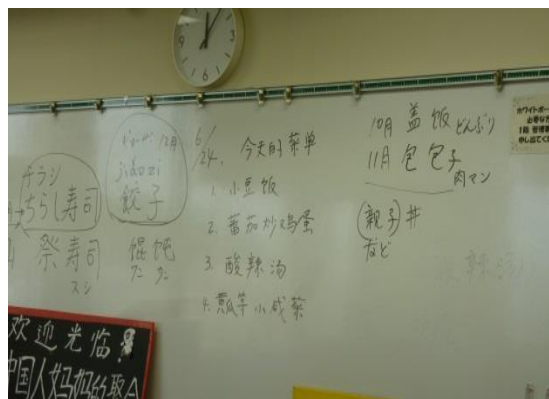 チラシ
ちらし寿司
祭寿司
スシ
12月
jiǎozi
餃子
馄饨
6/24.
今天的菜单
1. 小豆饭
2. 蕃茄炒鸡蛋
3. 酸辣汤
4. 黄瓜等小咸菜
10月 盖饭 どんぶり
11月 包包子
肉マン
親子丼
など
酸辣汤
ホワイトボー
欢迎光临
中国人妈妈的聚会
12
9
3
6